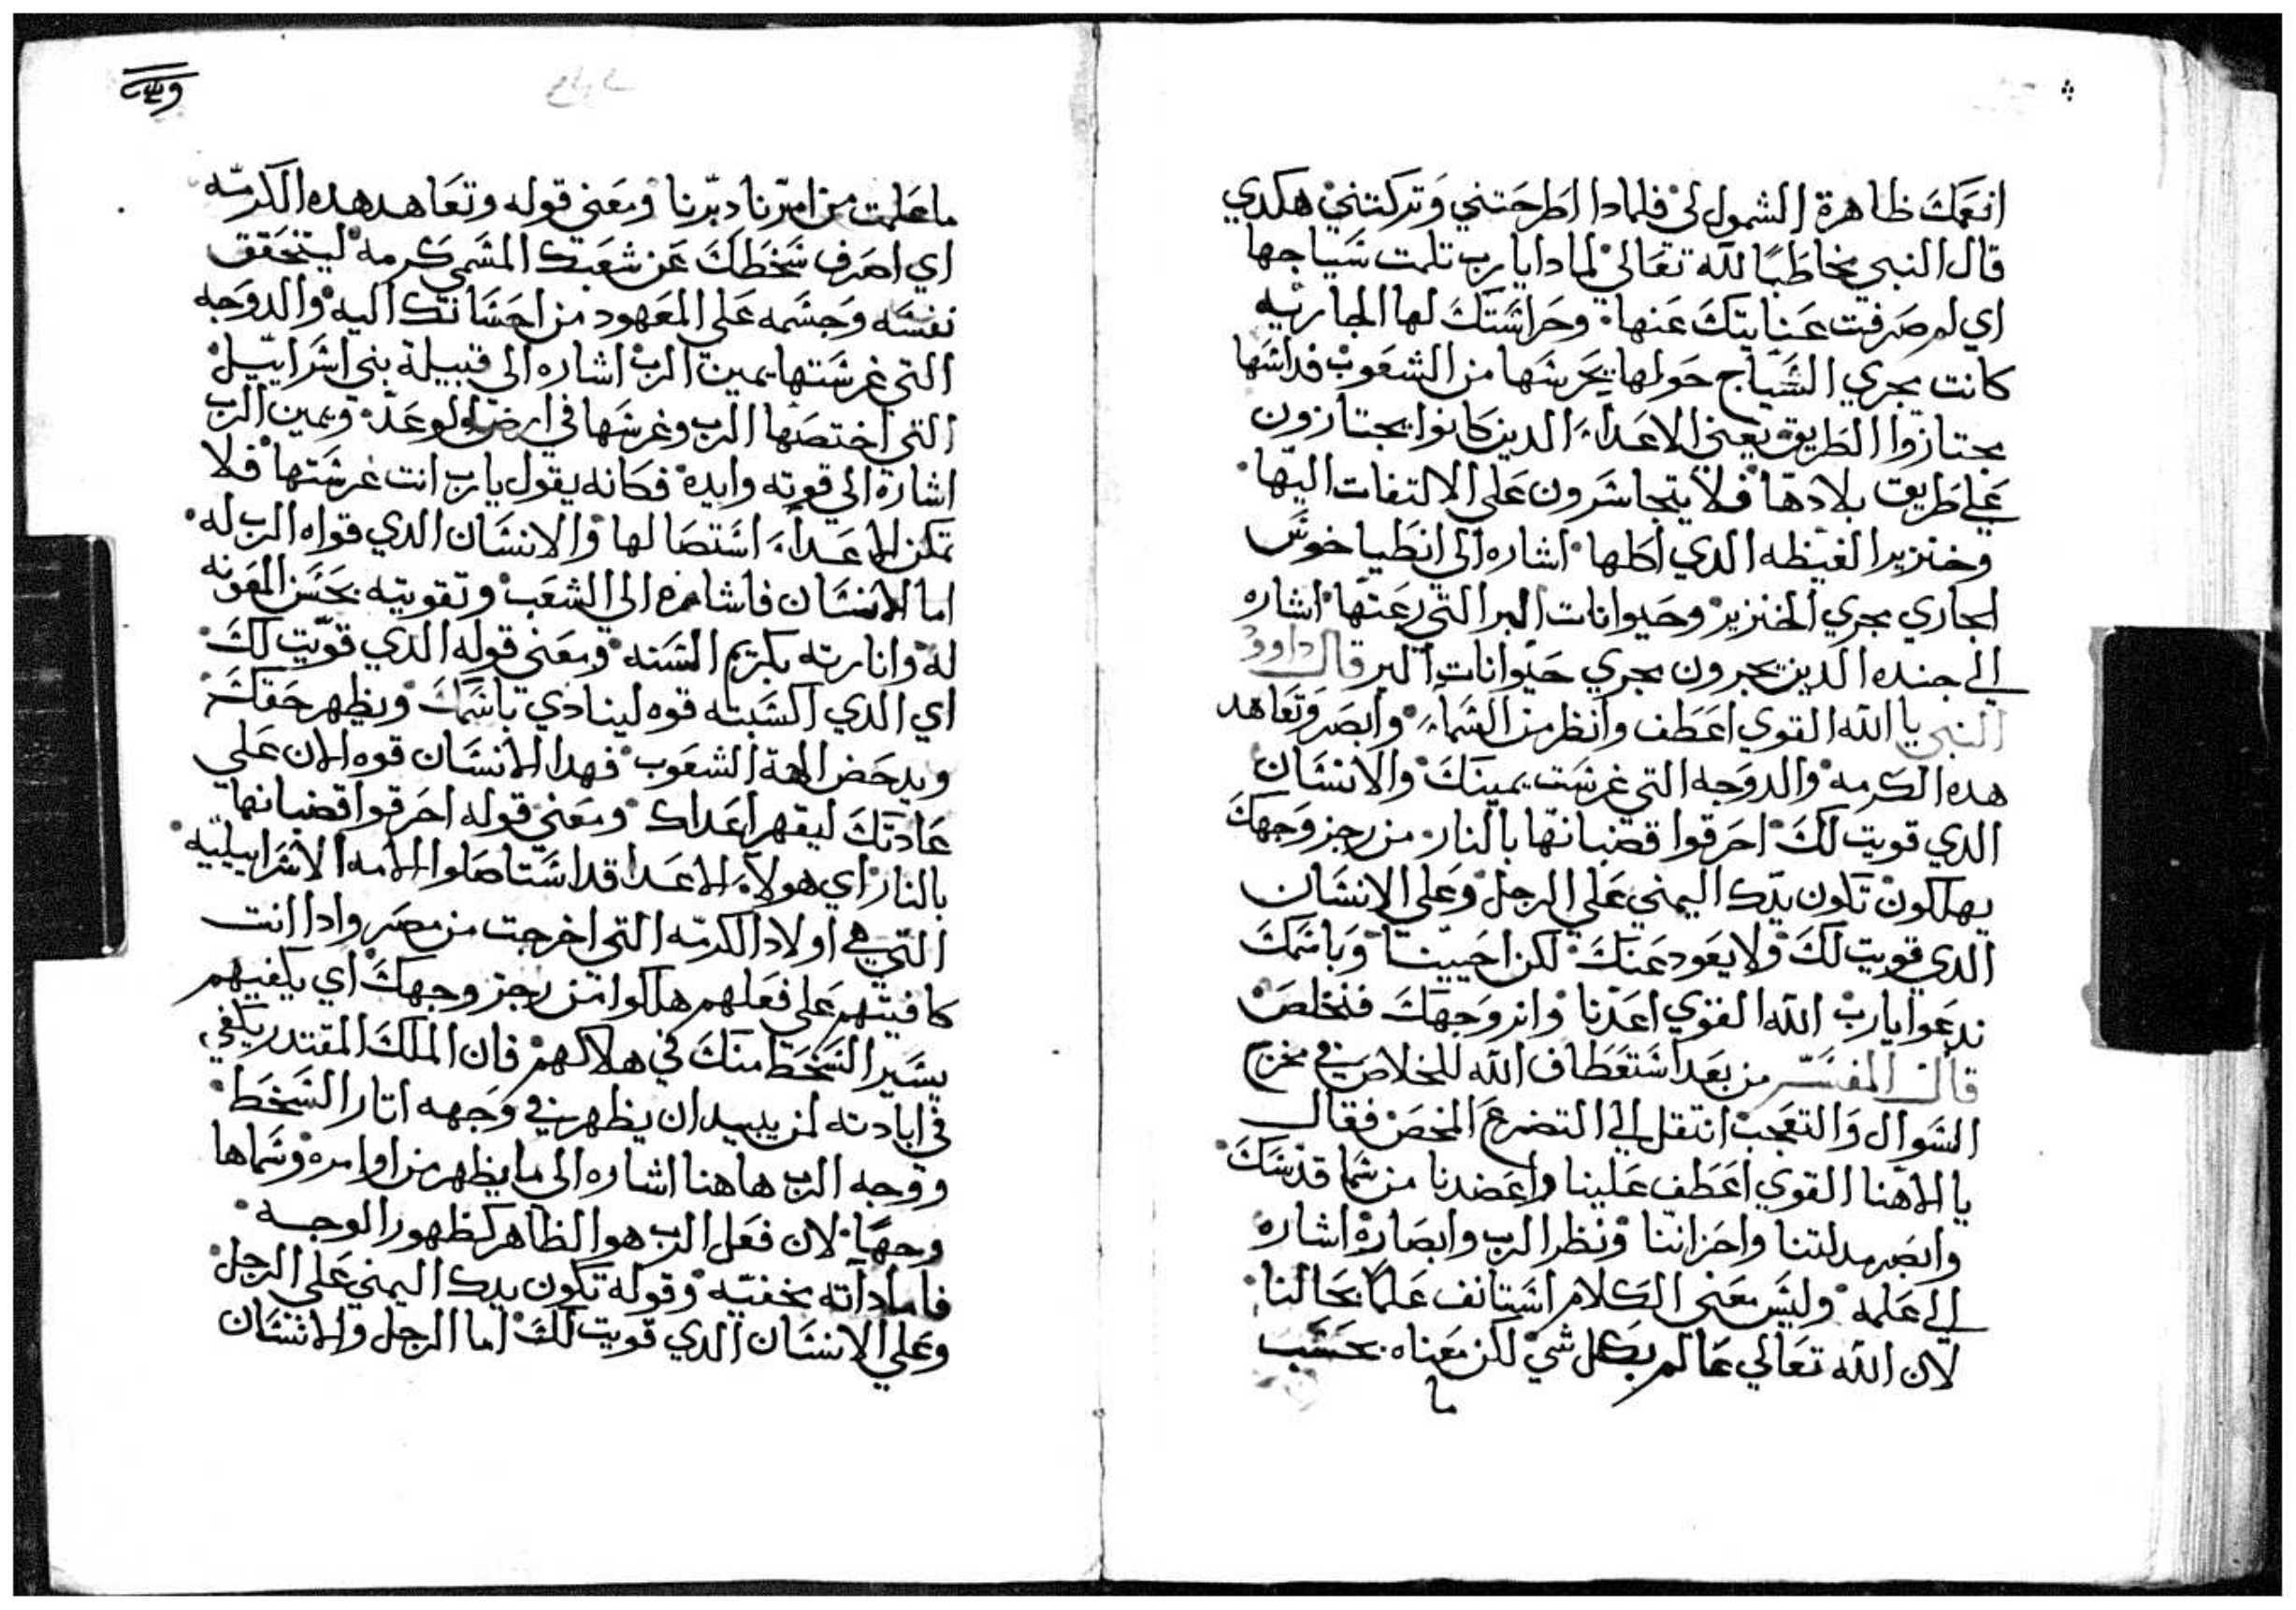 انعمك ظاهرة الشمول لي فلمادا اطرحتني وتركتني هكدي
قال النبي مخاطبًا لله تعالي لمادا يارب تلمت سياجها
اي لم صرفت عنايتك عنها وحراستك لها الجاريه
كانت مجري السياج حولها يحرسها من الشعوب فداسها
مجتازوا الطريق يعني الاعداء الدين كانوا يجتازون
علي طريق بلادها فلا يتجاسرون علي الالتفات اليها
وخنزير الغيظه الدي اكلها اشاره الي انطياخوس
الجاري مجري الخنزير وحيوانات البر التي رعتها اشاره
الي جنده الدين يجرون مجري حيوانات البر قال داوود
النبي يا الله القوي اعطف وانظر من السماء وابصر وتعاهد
هده الكرمه والدوجه التي غرست يمينك والانسان
الدي قويت لك احرقوا قضبانها بالنار من رجز وجهك
يهلكون تكون يدك اليمني علي الرجل وعلي الانسان
الدي قويت لك ولا يعود عنك لكن احييتنا وباسمك
ندعوا يارب الله القوي اعدنا وانر وجهك فنخلص
قال المفسر من بعد استعطاف الله للخلاص في مخرج
السوال والتعجب انتقل الي التضرع المخض فقال
يا الاهنا القوي اعطف علينا واعضدنا من سما قدسك
وابصر مدلتنا واحزاننا ونظر الرب وابصاره اشاره
الي علمه وليس معني الكلام استانف علمًا بحالنا
لان الله تعالي عالم بكل شي لكن معناه بحسب
ما
ما علمت من امرنا دبرنا ومعني قوله وتعاهد هده الكرمه
اي اصرف سخطك عن شعبك المسمي كرمه ليتحقق
نفسه وجسمه علي المعهود من احسانك اليه والدوجه
التي غرستها يمين الرب اشاره الي قبيلة بني اسراييل
التي اختصها الرب وغرسها في ارض الوعد ويمين الرب
اشارة الي قوته وايده فكانه يقول يارب انت غرستها فلا
تمكن الاعداء استصالها والانسان الدي قواه الرب له
اما الانسان فاشاره الي الشعب وتقويته بحسن المعونه
له وانارته بكريم السنه ومعني قوله الدي قويت لك
اي الدي اكسبته قوه لينادي باسمك ويظهر حقك
ويدحض الهة الشعوب فهدا الانسان قوه الان علي
عادتك ليقهر اعداك ومعني قوله احرقوا قضبانها
بالنار اي هولاء الاعدا قد استاصلوا الامه الاسراييليه
التي هي اولاد الكرمه التي اخرجت من مصر وادا انت
كافيتهم علي فعلهم هلكوا من رجز وجهك اي يكفيهم
يسير السخط منك في هلاكهم فان الملك المقتدر يكفي
في ابادته لمن يبيد ان يظهر في وجهه اتار السخط
ووجه الرب هاهنا اشاره الي ما يظهر من اوامره وسماها
وجهًا لان فعل الرب هو الظاهر كظهور الوجه
فاما داته مخفيه وقوله تكون يدك اليمني علي الرجل
وعلي الانسان الدي قويت لك اما الرجل والانسان